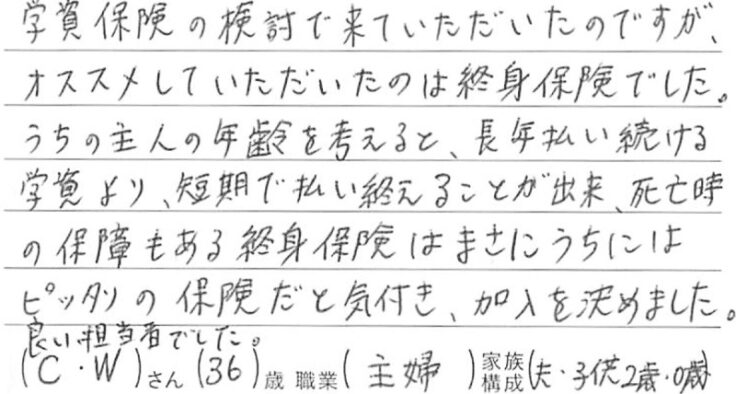 学資保険の検討で来ていただいたのですが、
オススメしていただいたのは終身保険でした。
うちの主人の年齢を考えると、長年払い続ける
学資より、短期で払い終えることが出来、死亡時
の保障もある終身保険はまさにうちには
ピッタリの保険だと気付き、加入を決めました。
良い担当者でした。
(C・W)さん(36)歳 職業(主婦)家族構成(夫・子供2歳・0歳)